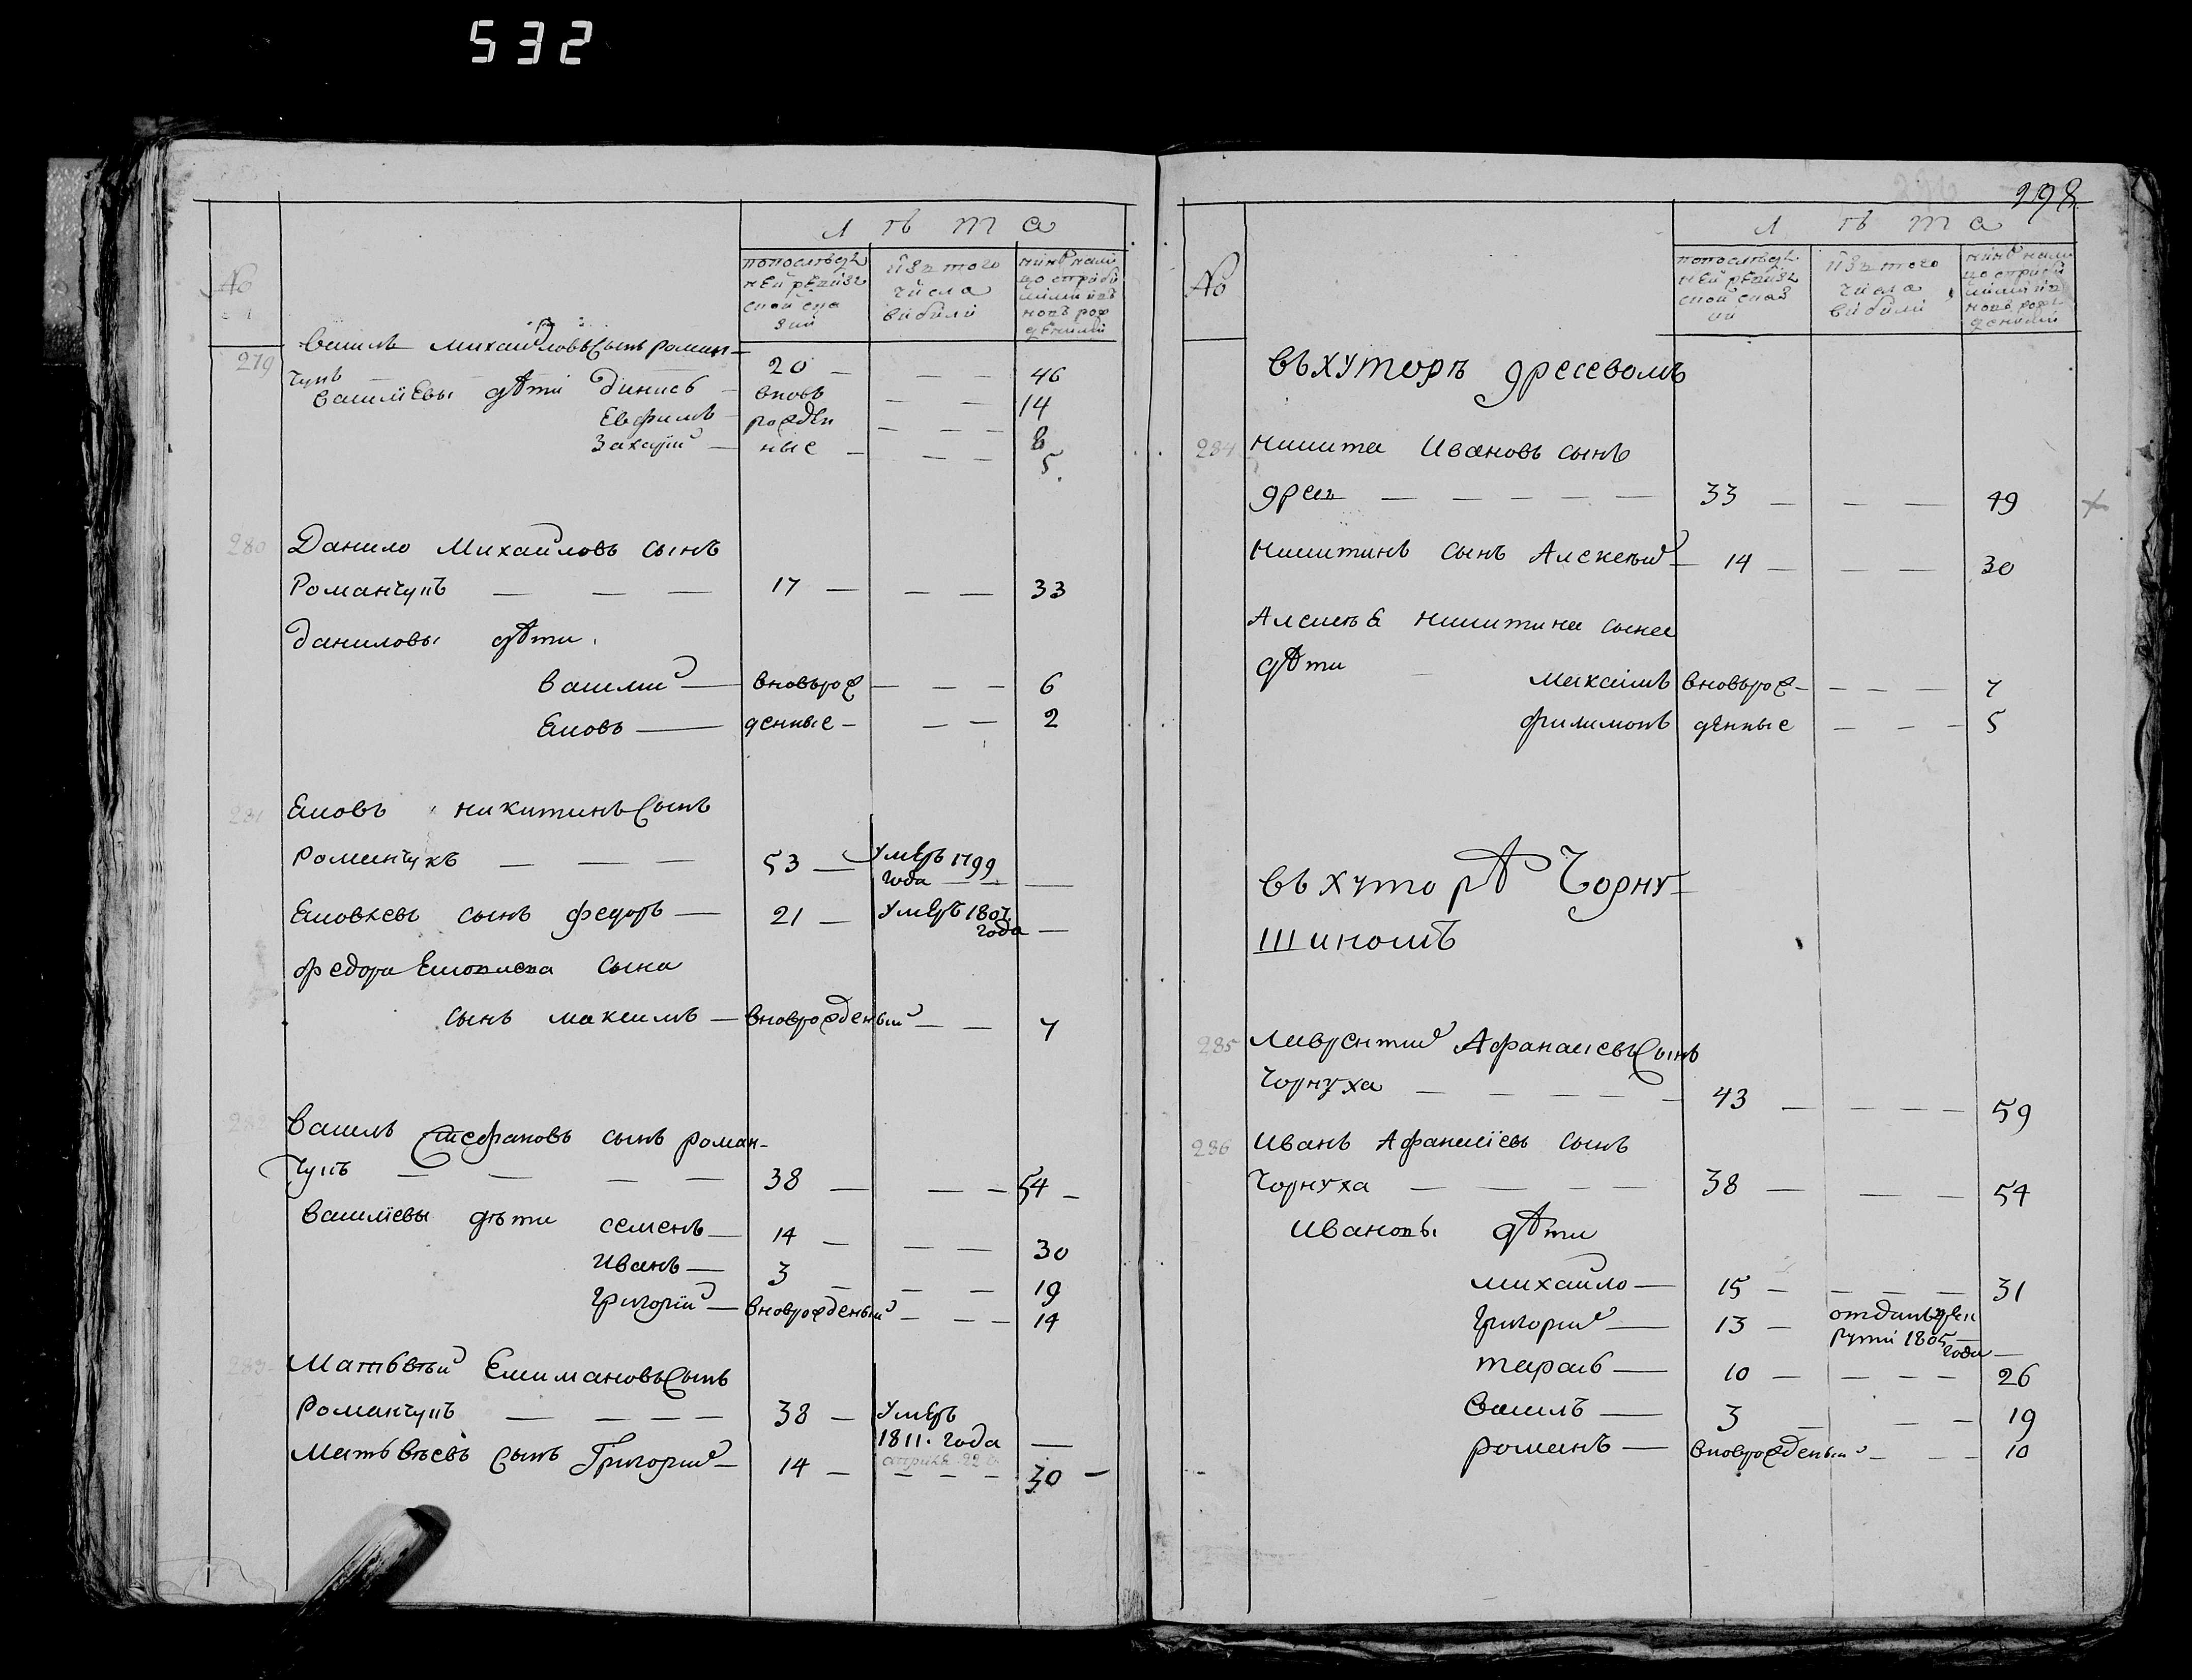 532
Л ѣ т а
№
по послѣд
ней ревиз
ской ска
зки
изъ того
числа
выбыли
нинѣ нали
цо
нов рож
денними
279 Василь Михайловъ Сынъ Роман-
чукъ — 20 — — — 46
Василіевы дѣти Динисъ — вновь — — 14
Евфимъ — рожден — — — 8
Захарій — ные — — — 5.
280 Данило Михайловъ сынъ
Романчукъ — — — 17 — — — 33
Даниловы дѣти
Василий — вновьрож — — — 6
Яковъ — денные — — — 2
281 Яковъ никитинъ Сынъ
Романчукъ — — — 53 — Умеръ 1799
года — —
Яковлевъ сынъ Федоръ — 21 — Умеръ 1807
года —
Федора Яковлева сына
сынъ максимъ — вноврожденый — — 7
282 Василь Стефановъ сынъ роман-
чукъ — — — — 38 — — — 54 —
Василіевы дѣти семенъ — 14 — — — 30
Иванъ — 3 — — — 19
Григорій — вноврожденый — — — 14
283 Матвѣй Елимановъ Сынъ
Романчукъ — — — — 38 — Умеръ
1811. года —
Матвѣевъ Сынъ Григорий — 14 — — — — 30 —
298
Л ѣ т а
№
по послѣд
ней ревиз
ской сказ
ки
изъ того
числа
выбыли
нинѣ нали
цо
нов рож
денними
въ хуторѣ дресевомъ
284 Никита Ивановъ сынъ
дреса — — — — — 33 — — — 49
Никитинъ сынъ Алексѣй — 14 — — — 30
Алексѣя никитина сына
дѣти Михаилъ вновьрож — — — — 7
филимонъ денные — — — 5
въ хуторѣ Чорну-
шиномъ
285 Лаврентий Афанасіевъ Сынъ
Чорнуха — — — — — 43 — — — — 59
286 Иванъ Афанасіевъ сынъ
Чорнуха — — — — 38 — — — 54
Ивановы дѣти
михайло — 15 — — — — 31
Григорий — 13 — отданъ в рек
рути 1805 года —
тарасъ — 10 — — — — 26
Василъ — 3 — — — 19
романъ — вноврожденый — — — 10